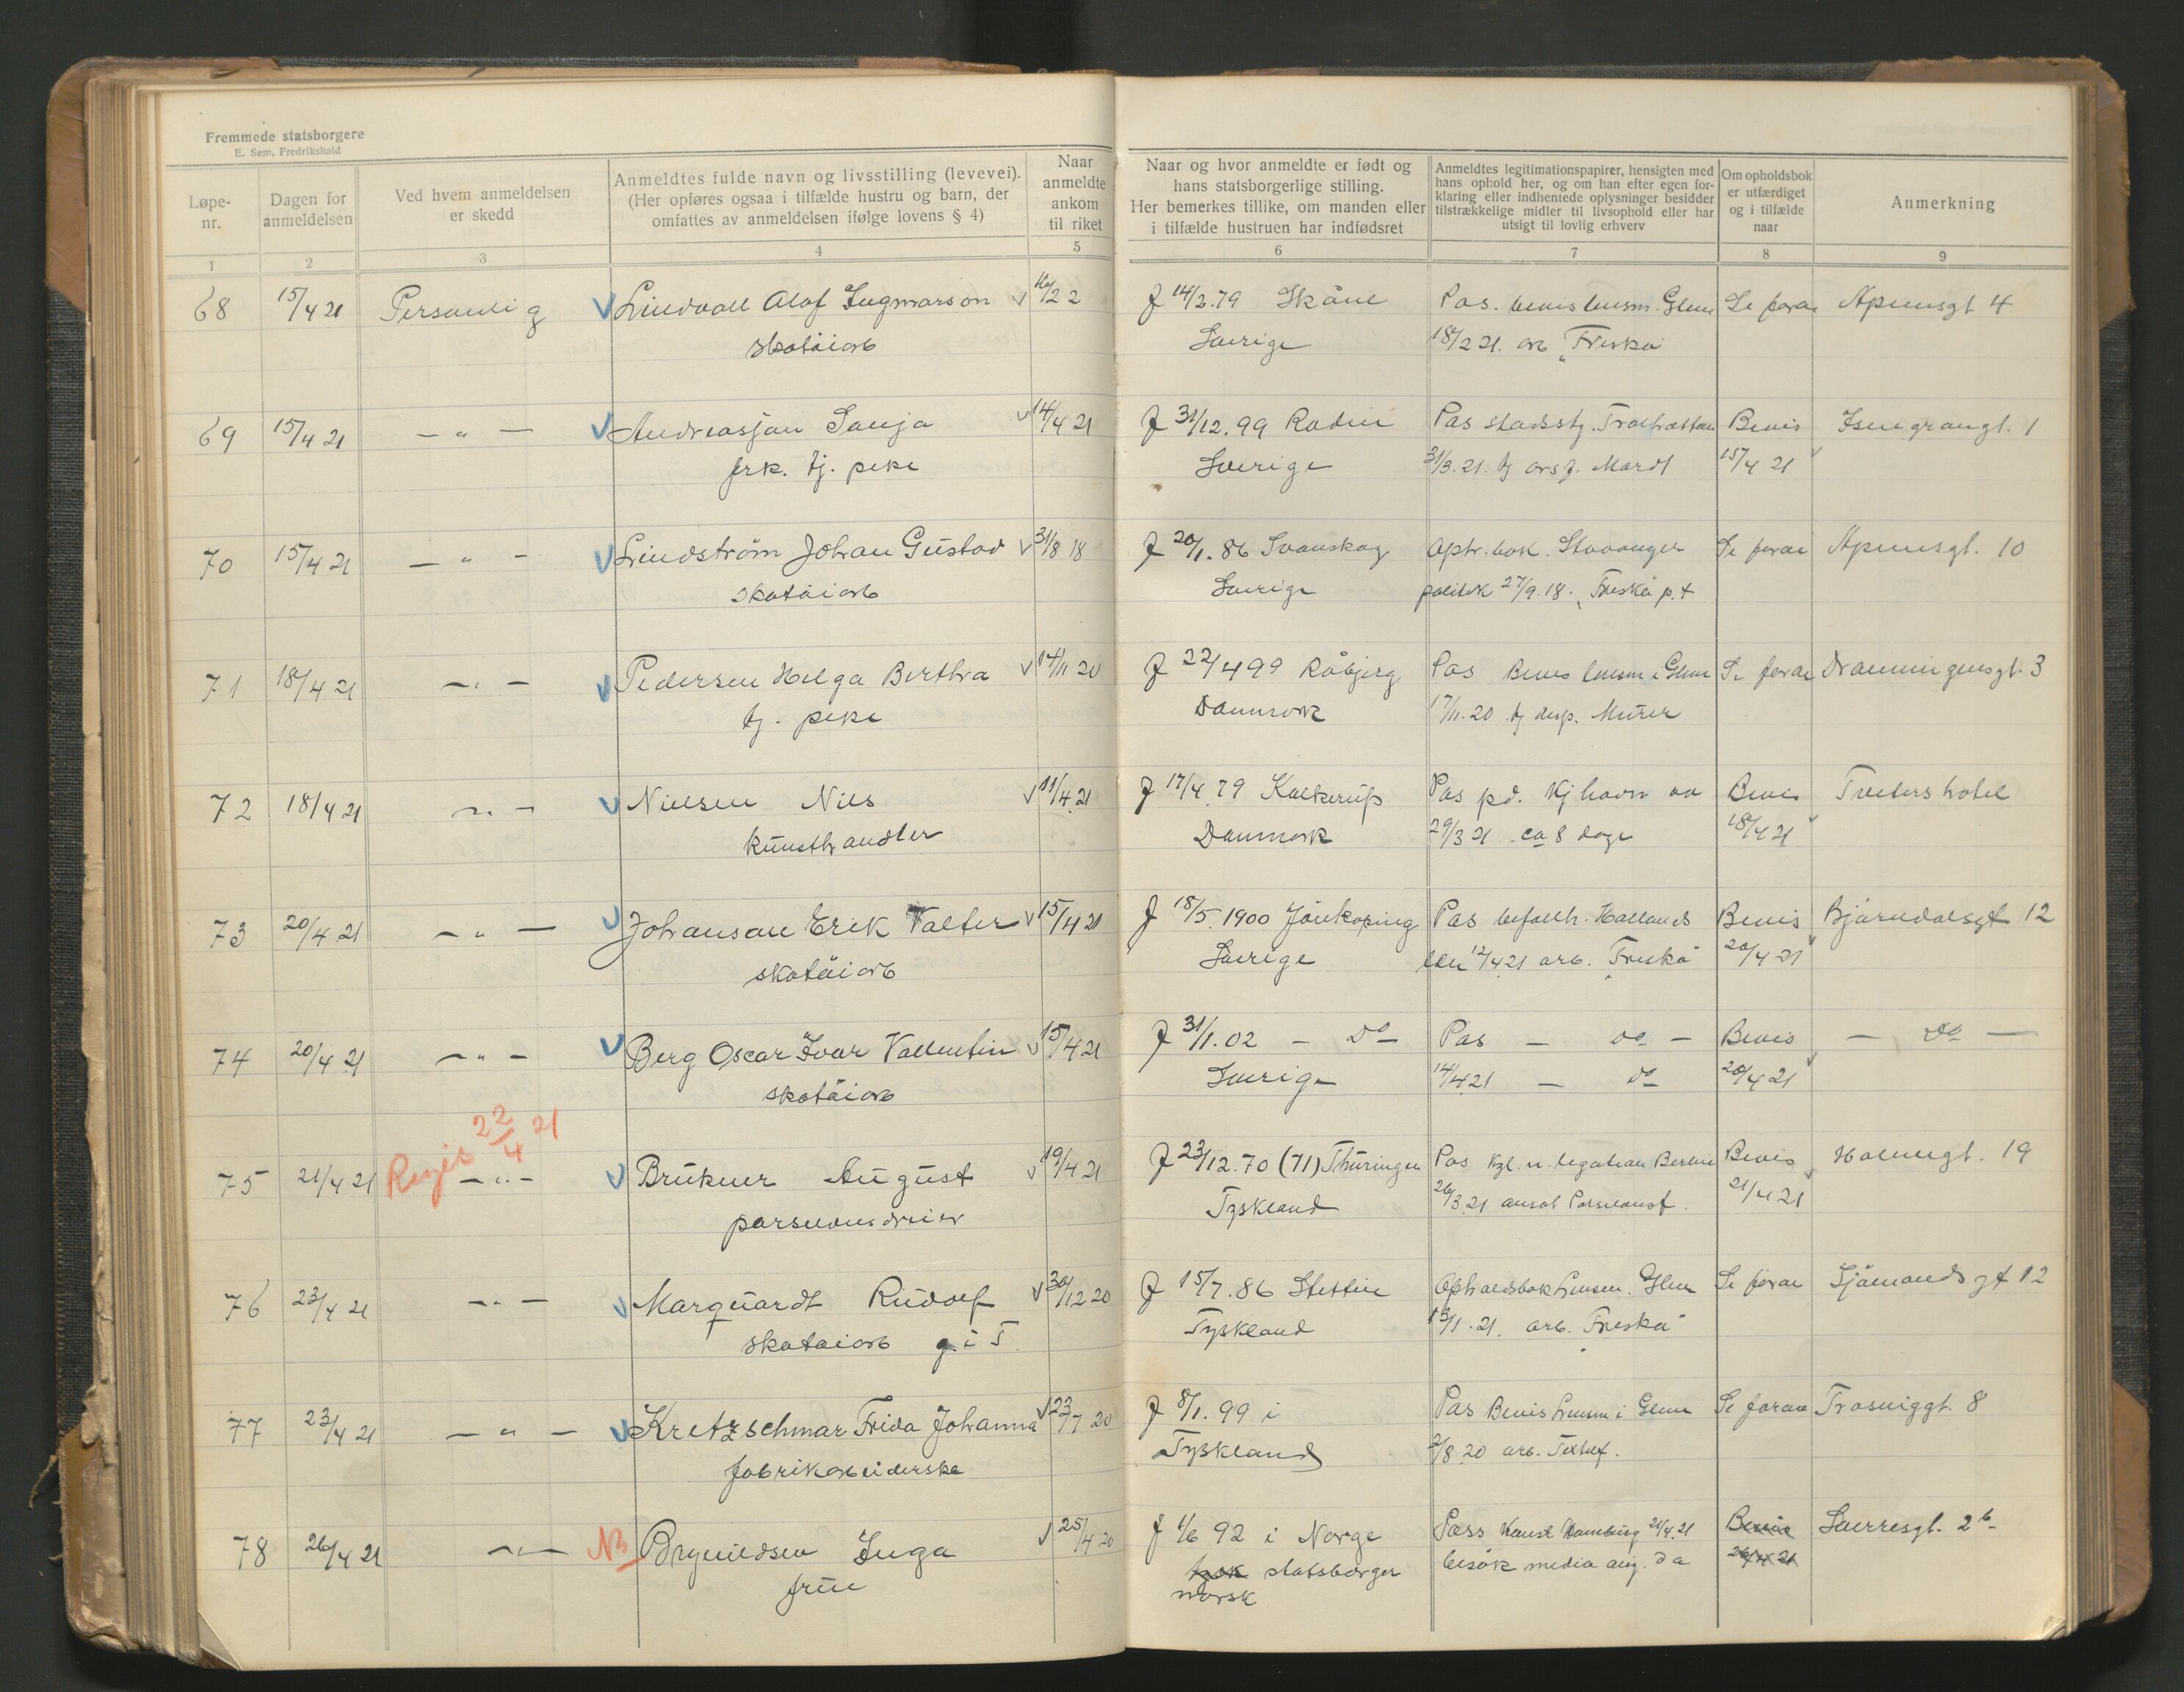 Fremmede statsborgere
E. Sem, Fredrikshald
Løpe-
nr.
Dagen for
anmeldelsen
Ved hvem anmeldelsen
er skedd
Anmeldtes fulde navn og livsstilling (levevei).
(Her opføres ogsaa i tilfælde hustru og barn, der
omfattes av anmeldelsen ifølge lovens § 4)
Naar
anmeldte
ankom
til riket
Naar og hvor anmeldte er født og
hans statsborgerlige stilling.
Her bemerkes tillike, om manden eller
i tilfælde hustruen har indfødsret
Anmeldtes legitimationspapirer, hensigten med
hans ophold her, og om han efter egen for-
klaring eller indhentede oplysninger besidder
tilstrækkelige midler til livsophold eller har
utsigt til lovlig erhverv
Om opholdsbok
er utfærdiget
og i tilfælde
naar
Anmerkning
1 2 3 4 5 6 7 8 9
68 15/4 21 Personlig Lindvall Olof Ingmarson f 14/2.79 Skåne Pas. bevis lensm. Glem Se foran Apenesgt 4
skotöiarb Sverige 18/2 21. arb "Freska"
69 15/4 21 — " — Andreasjan Sanja 14/4 21 f 31/12.99 Rodin Pas stadsfg. Trolhættan Bevis Isegrangt. 1
frk. tj. peke Sverige 31/3.21. tj Mardt 15/4 21
70 15/4 21 — " — Lindström Johan Gustav 31/8 18 f 20/1.86 Svanskog Oph. bok. Stavanger Se foran Apenesgt. 10
skotöiarb Sverige politik 27/9.18. "Freska" p.t
71 18/4 21 — " — Pedersen Helga Bertha 14/11 20 f 22/4 99 Råbjerg Pas Bevis lensm i Glem Se foran Dronningensgt. 3
tj. peke Danmark 17/11.20 tj disp. Murer
72 18/4 21 — " — Nielsen Nils 11/4.21 f 17/4.79 Kalkerup Pas pd. Kjhavn av Bevis hotel
kunsthandler Danmark 29/3 21. ca 8 dage 18/4 21
73 20/4 21 — " — Johanson Erik Valter 15/4 21 f 18/5.1900 Jönkoping Pas befallh. Hallands Bevis Bjørndalsgt 12
skotöiarb Sverige len 12/4 21 arb. "Freska" 20/4 21
74 20/4 21 — " — Berg Oscar Ivar Vallentin 15/4 21 f 31/1.02 — Do — Pas — do — Bevis — do —
skotöiarb Sverige 14/4 21 — do 20/4 21
Regis 22/4 21
75 21/4 21 — " — Brükner August 19/4 21 f 23/12.70 (71) Thüringen Pas Kgl. n. legation Berlin Bevis Holmegt. 19
porselensdreier Tyskland 26/3.21 ansat Porselænsf. 21/4 21
76 23/4 21 — " — Marquardt Rudolf 30/12 20 f 15/7.86 Stettin Opholdsbok lensm. Glem Se foran Sjömandsgt 12
skotöiarb g. i T. Tyskland 13/1.21. arb. "Freska"
77 23/4 21 — " — Kretzschmar Frida Johanna 23/7 20 f 8/1.99 i Pas Bevis lensm i Glem Se foran Trosviggt. 8
fabrikarbeiderske Tyskland 2/8.20 arb. Tekstilf.
78 26/4 21 — " — NB Brynildsen Inga 25/4 20 f 1/6 92 i Norge Pass Konsl Hamburg 21/4.21 Bevis Sverresgt. 2b
frue tysk statsborger besök 26/4 21
norsk